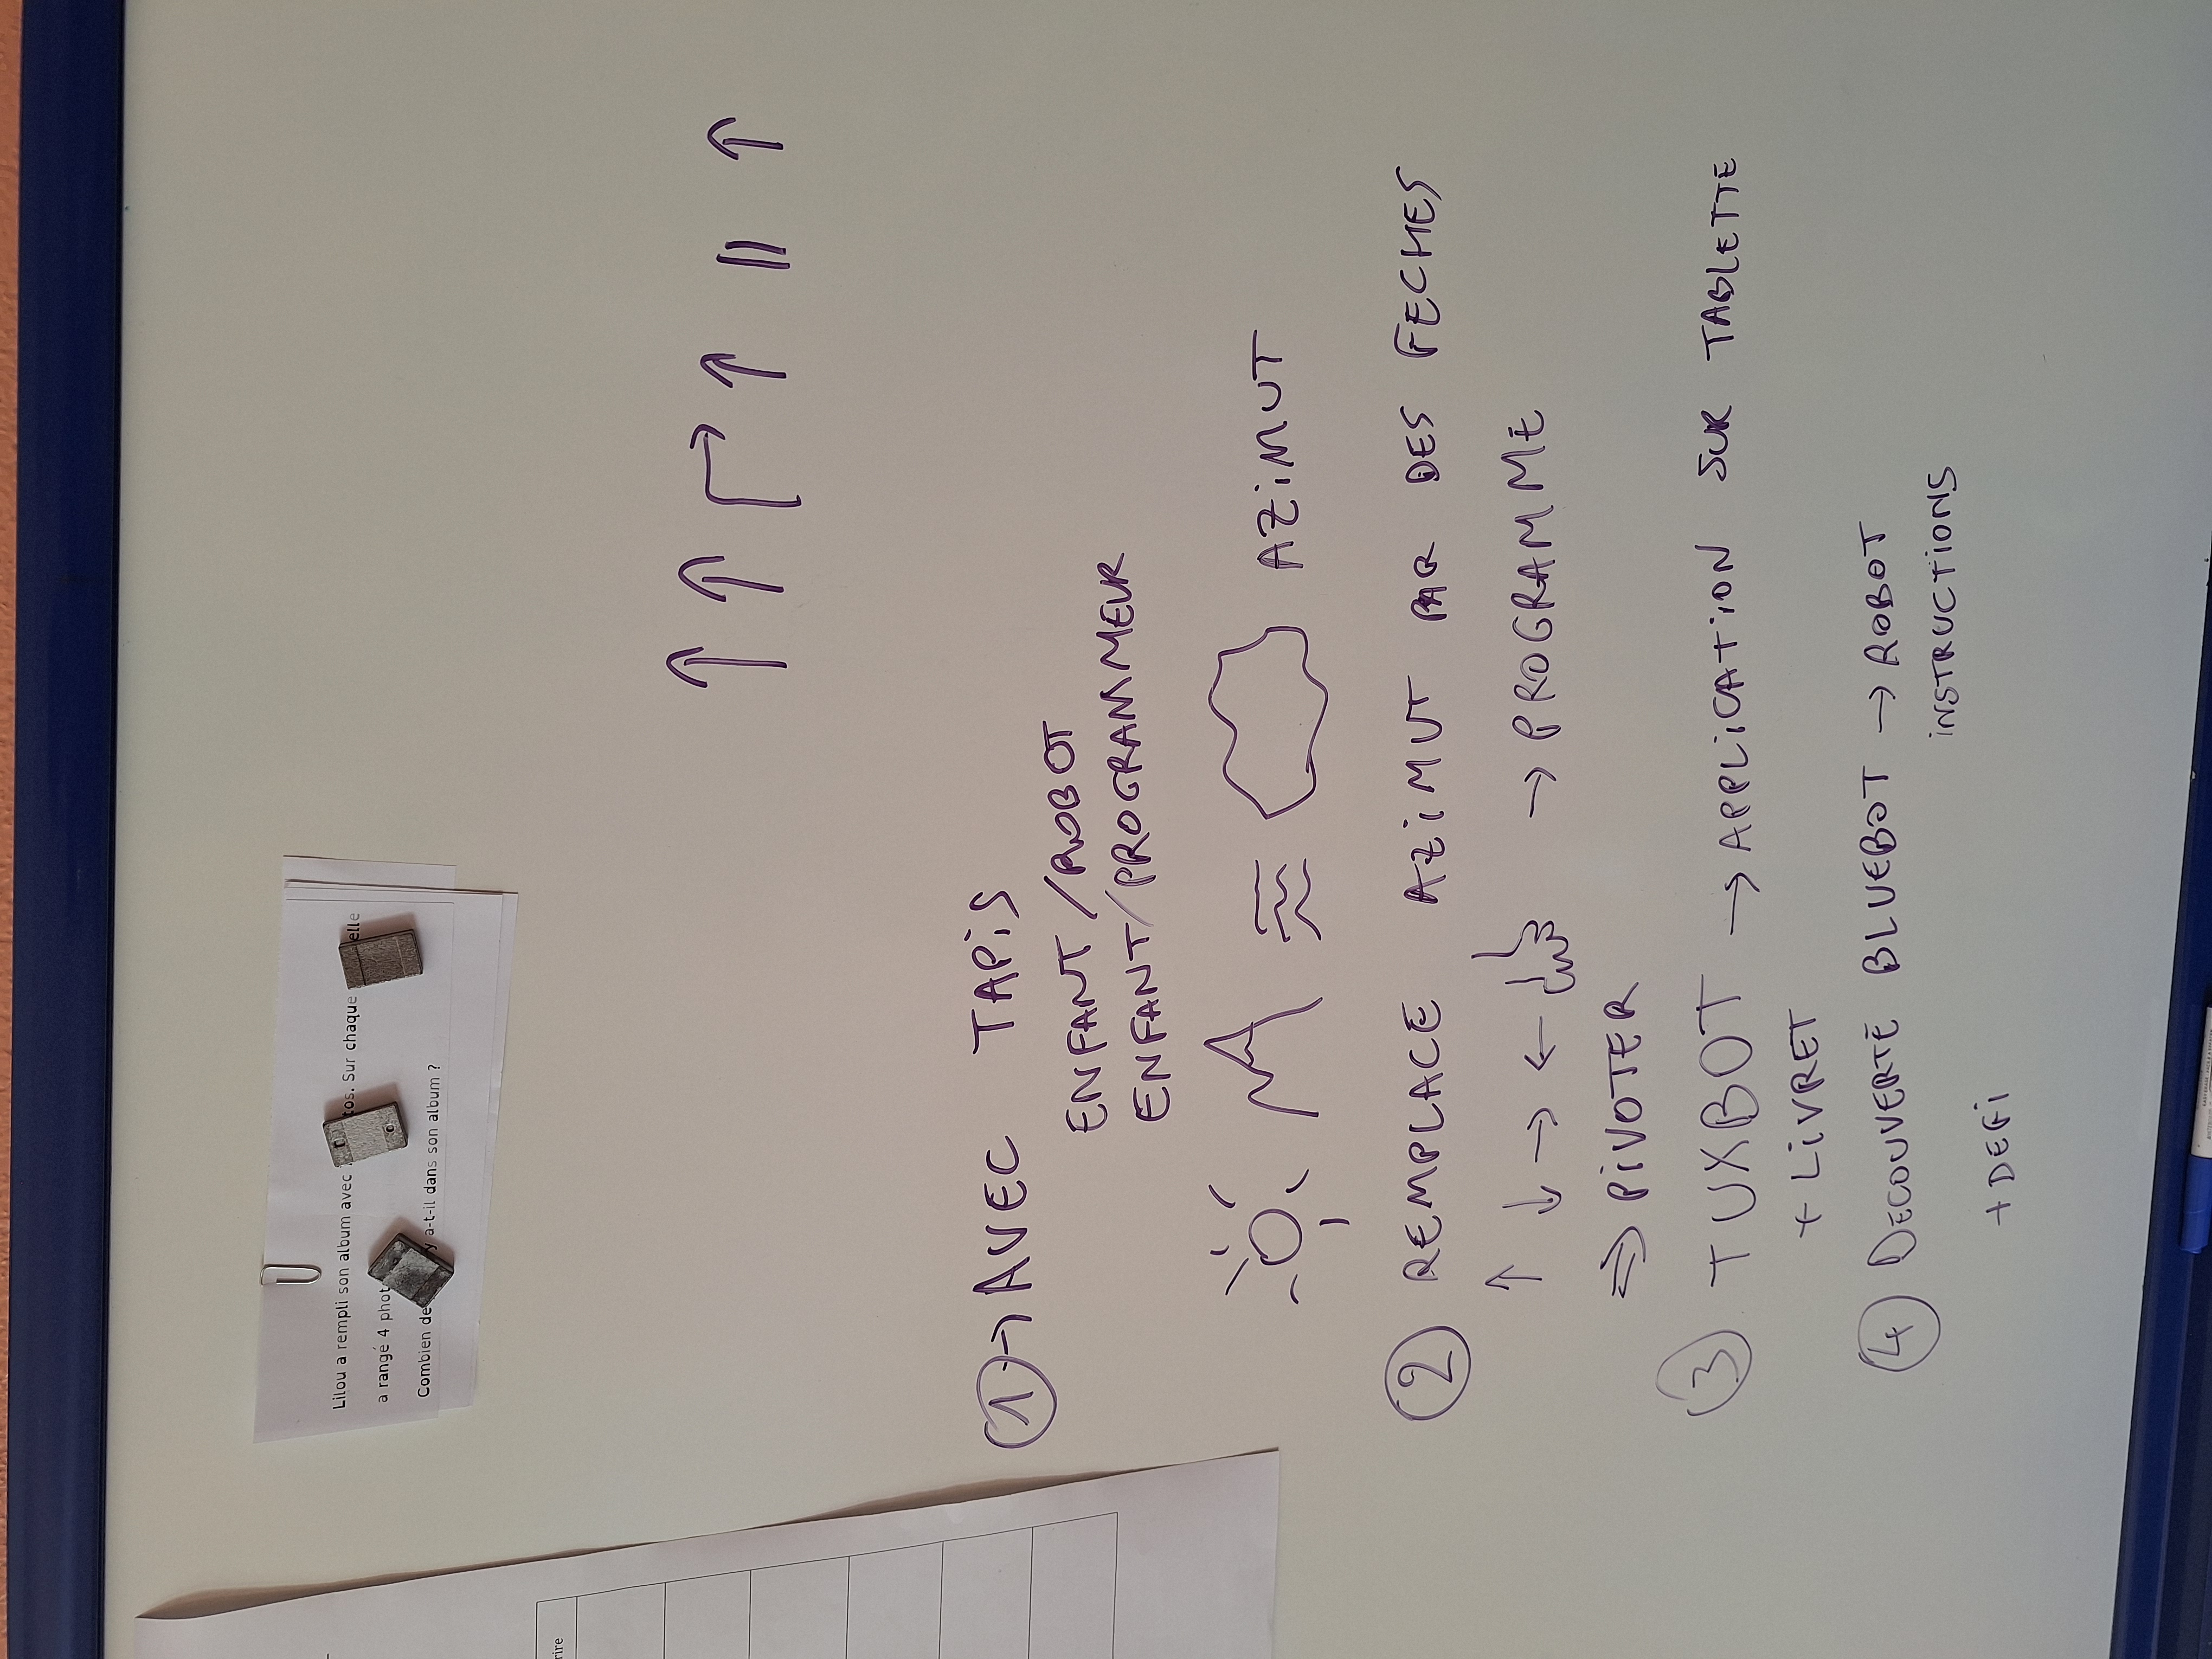 Lilou a rempli son album avec tos. Sur chaque elle
a rangé 4 phot
Combien de y a-t-il dans son album ?
↑ ↑ ↱ ↑ || ↑
① → AVEC TAPIS
ENFANT / ROBOT
ENFANT/PROGRAMMEUR
AZIMUT
② REMPLACE AZIMUT PAR DES FECHES
↑ ↓ → ← → PROGRAMME
⇒ PIVOTER
③ TUXBOT → APPLICATION SUR TABLETTE
+ LIVRET
④ DECOUVERTE BLUEBOT → ROBOT
INSTRUCTIONS
+ DEFI
rire